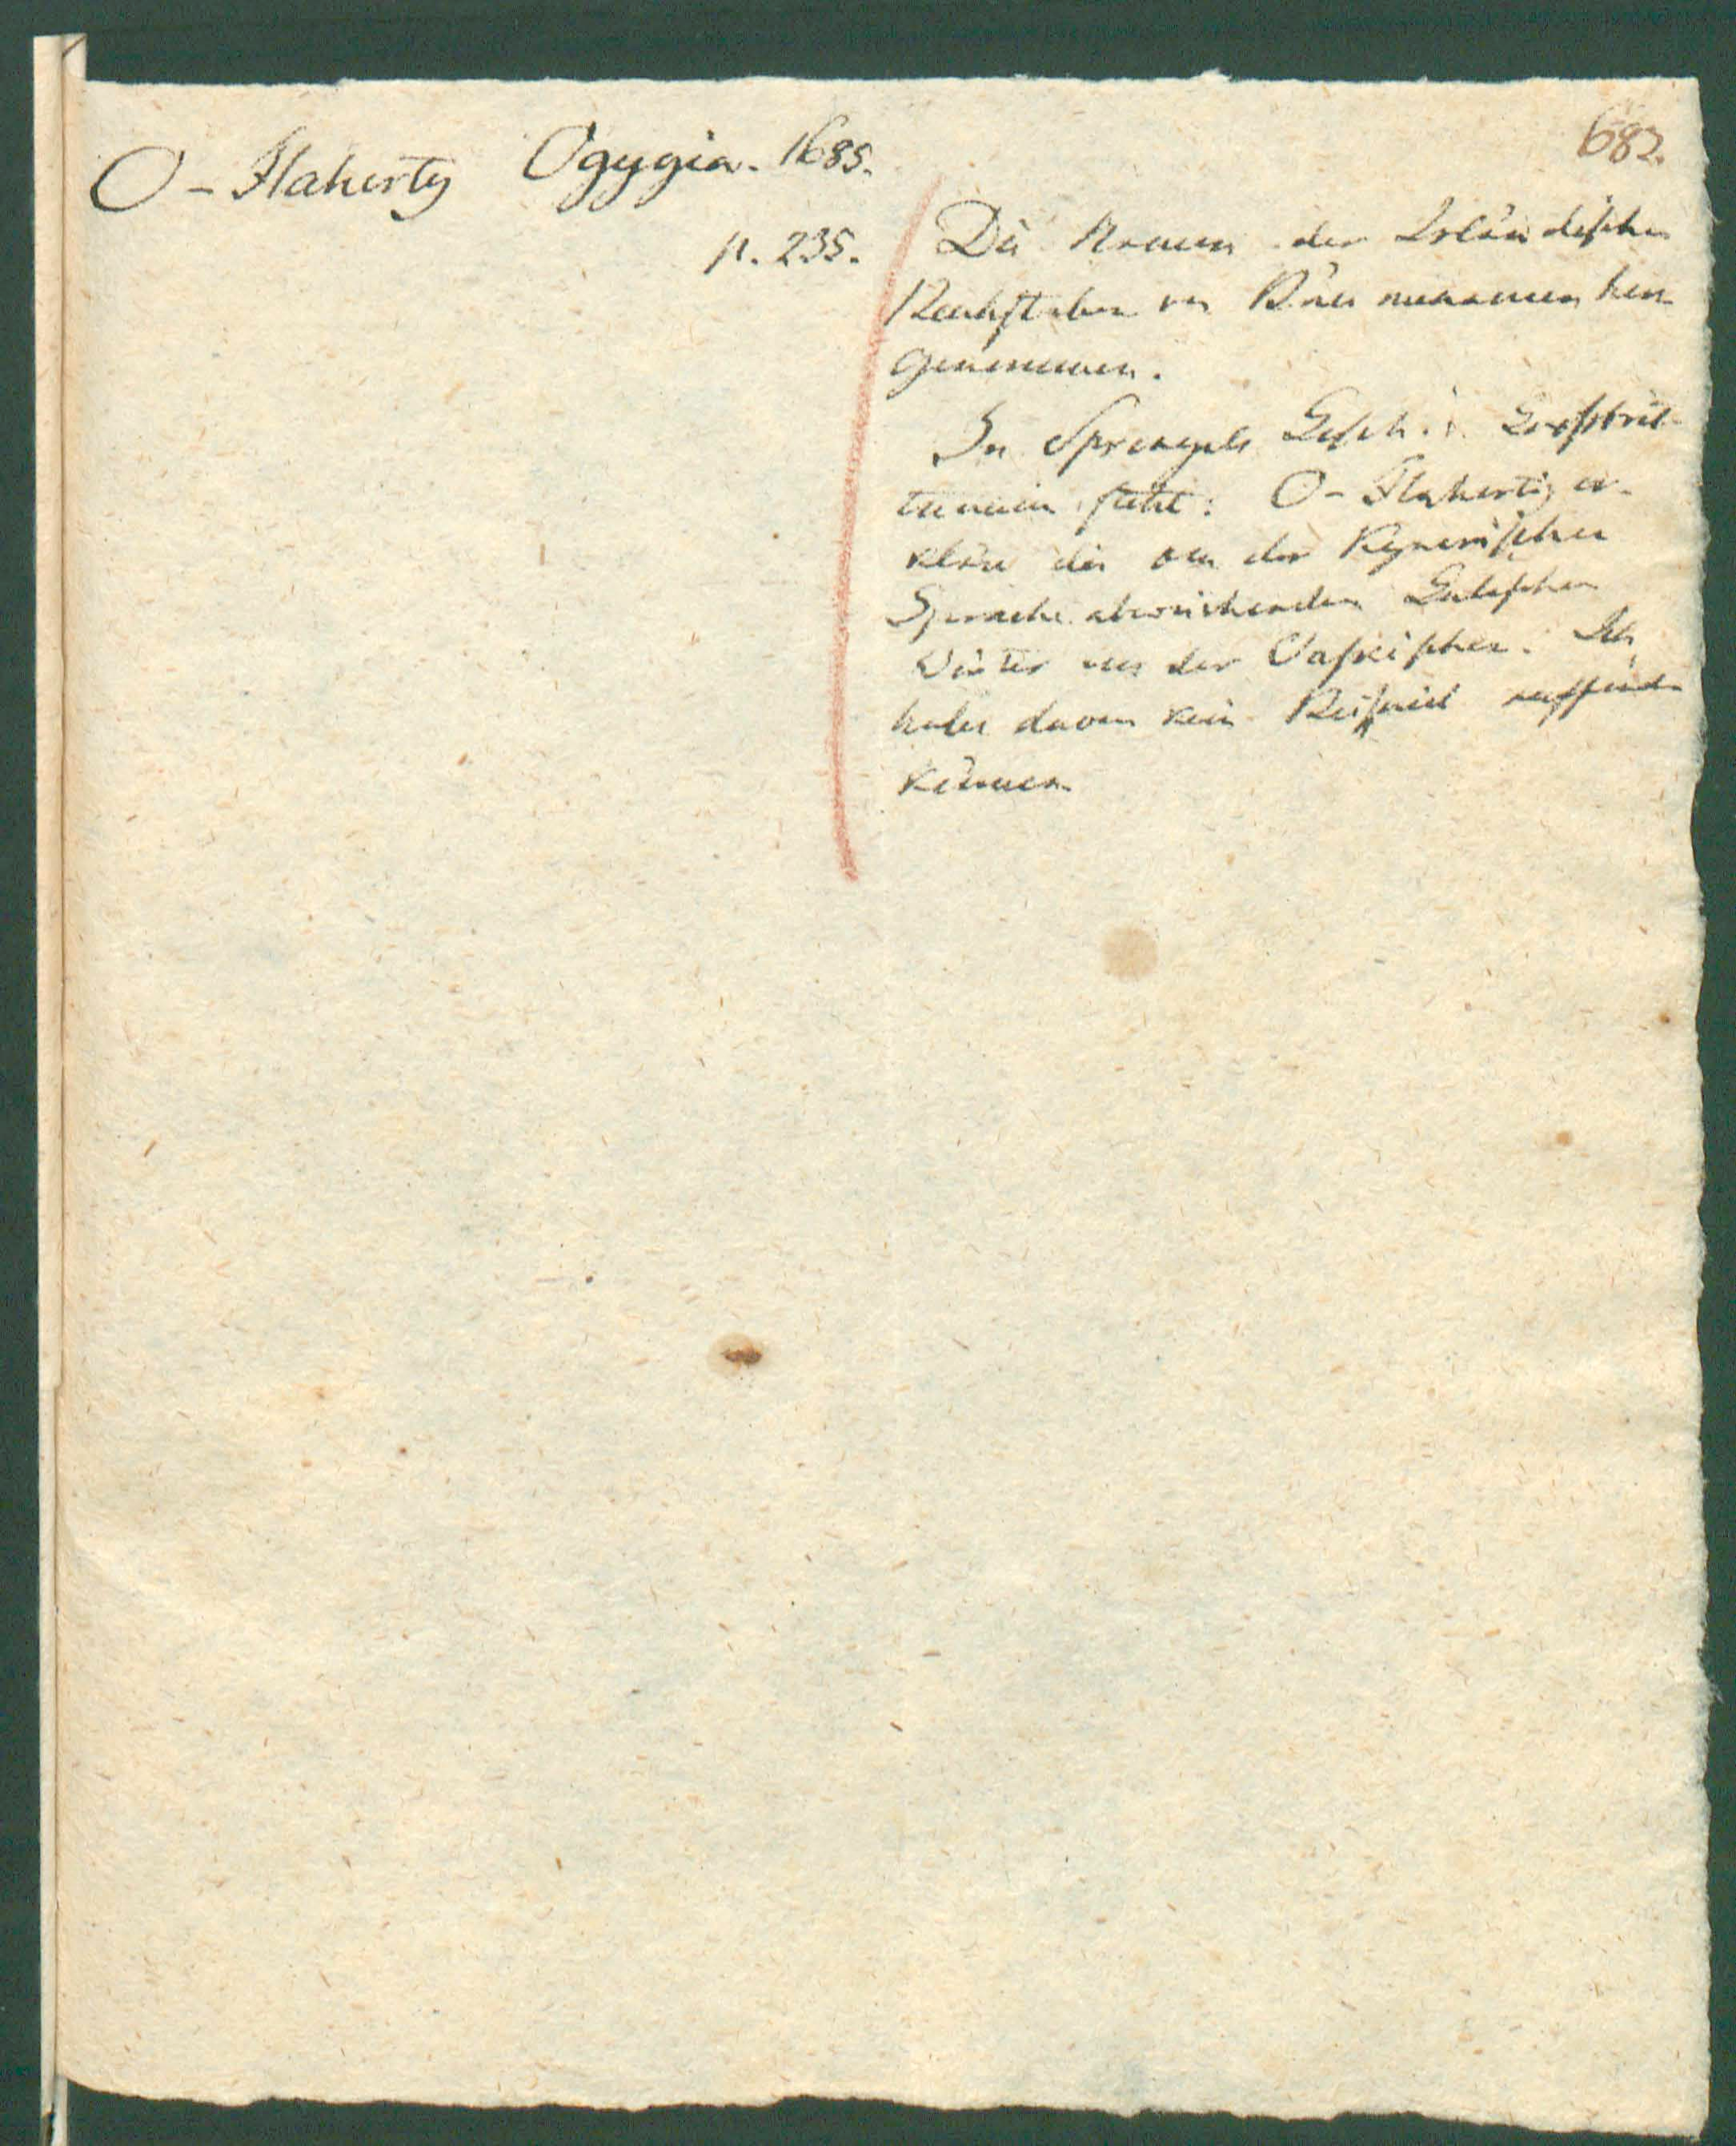 682.
O-Flaherty Ogygia. 1685.
p. 235. Die Namen der Irländischen
Buchstaben von Bäumenamen her-
genommen.
In Sprengels Gesch. v. Grossbrit-
tannien steht: O-Flaherty er-
kläre die von der Kymrischen
Sprache abweichenden Galischen
Wörter aus der Vaskischen. Ich
habe davon kein Beispiel auffinden
können.